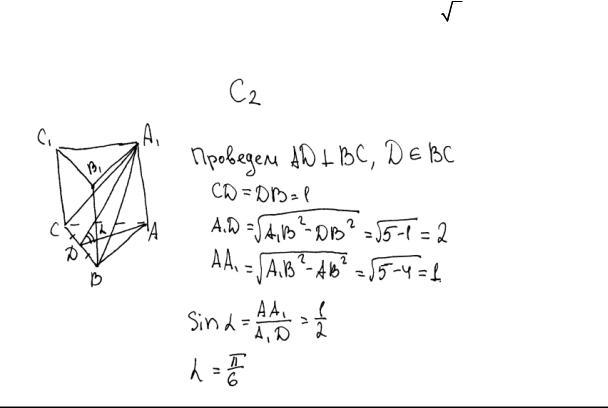 √
C2
C₁ A₁
B₁
C α A
D
B
Проведем AD⊥BC, D∈BC
CD=DB=1
A₁D=√(A₁B²-DB²)=√(5-1)=2
AA₁=√(A₁B²-AB²)=√(5-4)=1
Sin α=AA₁/A₁D=1/2
α=π/6